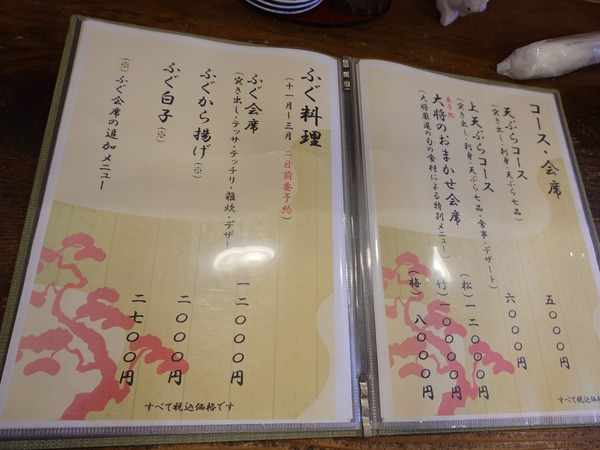 コース・会席
天ぷらコース 五〇〇〇円
(突き出し・刺身・天ぷら七品)
上天ぷらコース 六〇〇〇円
(突き出し・刺身・天ぷら七品・食事・デザート)
要予約
大将のおまかせ会席
(大将厳選の旬の食材による特別メニュー)
(松) 一二〇〇〇円
(竹) 一〇〇〇〇円
(梅) 八〇〇〇円
すべて税込価格
ふぐ料理
(十一月～三月 二日前要予約)
ふぐ会席 一二〇〇〇円
(突き出し・テッサ・テッチリ・雑炊・デザー
ふぐから揚げ(※) 二〇〇〇円
ふぐ白子(※) 二七〇〇円
(※)ふぐ会席の追加メニュー
すべて税込価格です